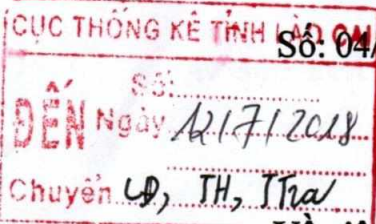 CỤC THỐNG KÊ TỈNH LÀO CAI
Số: 04/
Số:
ĐẾN Ngày 12/7/2018
Chuyển LĐ, TH, TTra